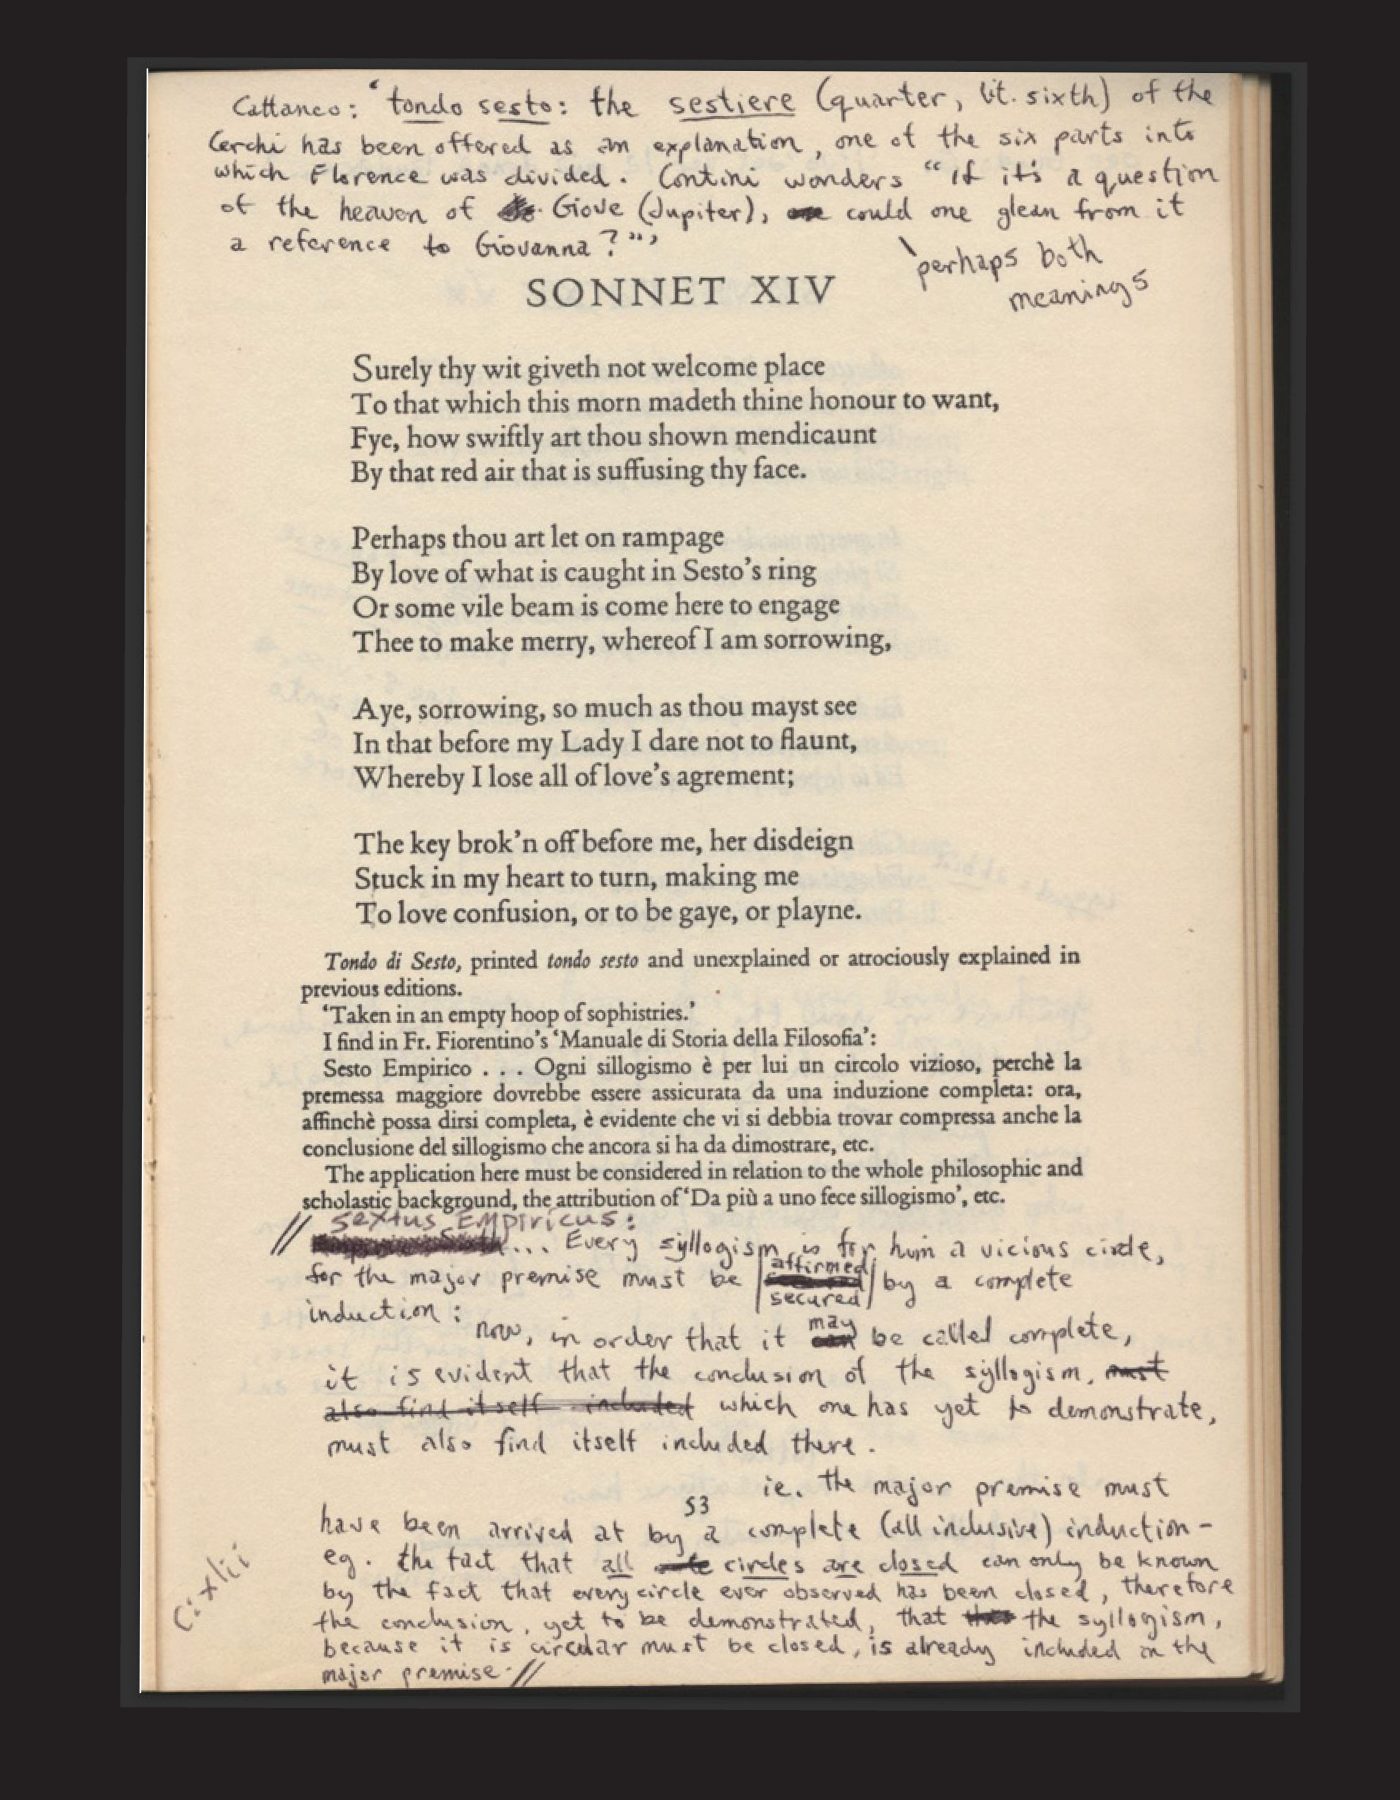 Cattaneo: 'tondo sesto: the sestiere (quarter, lit. sixth) of the
Cerchi has been offered as an explanation, one of the six parts into
which Florence was divided. Contini wonders "if it's a question
of the heaven of Giove (Jupiter), could one glean from it
a reference to Giovanna?"'
perhaps both
meanings
SONNET XIV
Surely thy wit giveth not welcome place
To that which this morn madeth thine honour to want,
Fye, how swiftly art thou shown mendicaunt
By that red air that is suffusing thy face.
Perhaps thou art let on rampage
By love of what is caught in Sesto's ring
Or some vile beam is come here to engage
Thee to make merry, whereof I am sorrowing,
Aye, sorrowing, so much as thou mayst see
In that before my Lady I dare not to flaunt,
Whereby I lose all of love's agrement;
The key brok'n off before me, her disdeign
Stuck in my heart to turn, making me
To love confusion, or to be gaye, or playne.
Tondo di Sesto, printed tondo sesto and unexplained or atrociously explained in
previous editions.
'Taken in an empty hoop of sophistries.'
I find in Fr. Fiorentino's 'Manuale di Storia della Filosofia':
Sesto Empirico . . . Ogni sillogismo è per lui un circolo vizioso, perchè la
premessa maggiore dovrebbe essere assicurata da una induzione completa: ora,
affinchè possa dirsi completa, è evidente che vi si debbia trovar compressa anche la
conclusione del sillogismo che ancora si ha da dimostrare, etc.
The application here must be considered in relation to the whole philosophic and
scholastic background, the attribution of 'Da più a uno fece sillogismo', etc.
// Sextus Empiricus:
... Every syllogism is for him a vicious circle,
affirmed
for the major premise must be by a complete
secured
induction:
may
now, in order that it can be called complete,
it is evident that the conclusion of the syllogism, must
also find itself included which one has yet to demonstrate,
must also find itself included there.
ie. the major premise must
53
have been arrived at by a complete (all inclusive) induction -
eg. the fact that all circles are closed can only be known
by the fact that every circle ever observed has been closed, therefore
the conclusion, yet to be demonstrated, that the syllogism,
because it is circular must be closed, is already included in the
major premise. //